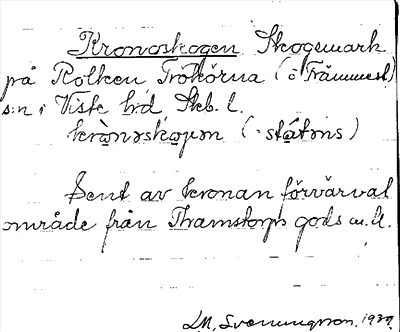 Kronoskogen Skogsmark
på Rolken Frökärna (ö Främmest.)
s:n i Viste hrd Skb. l.
(: statens)
Sent av kronan förvärvat
område från Thamstorps gods m. fl.
I.M. Svenungsson. 1939